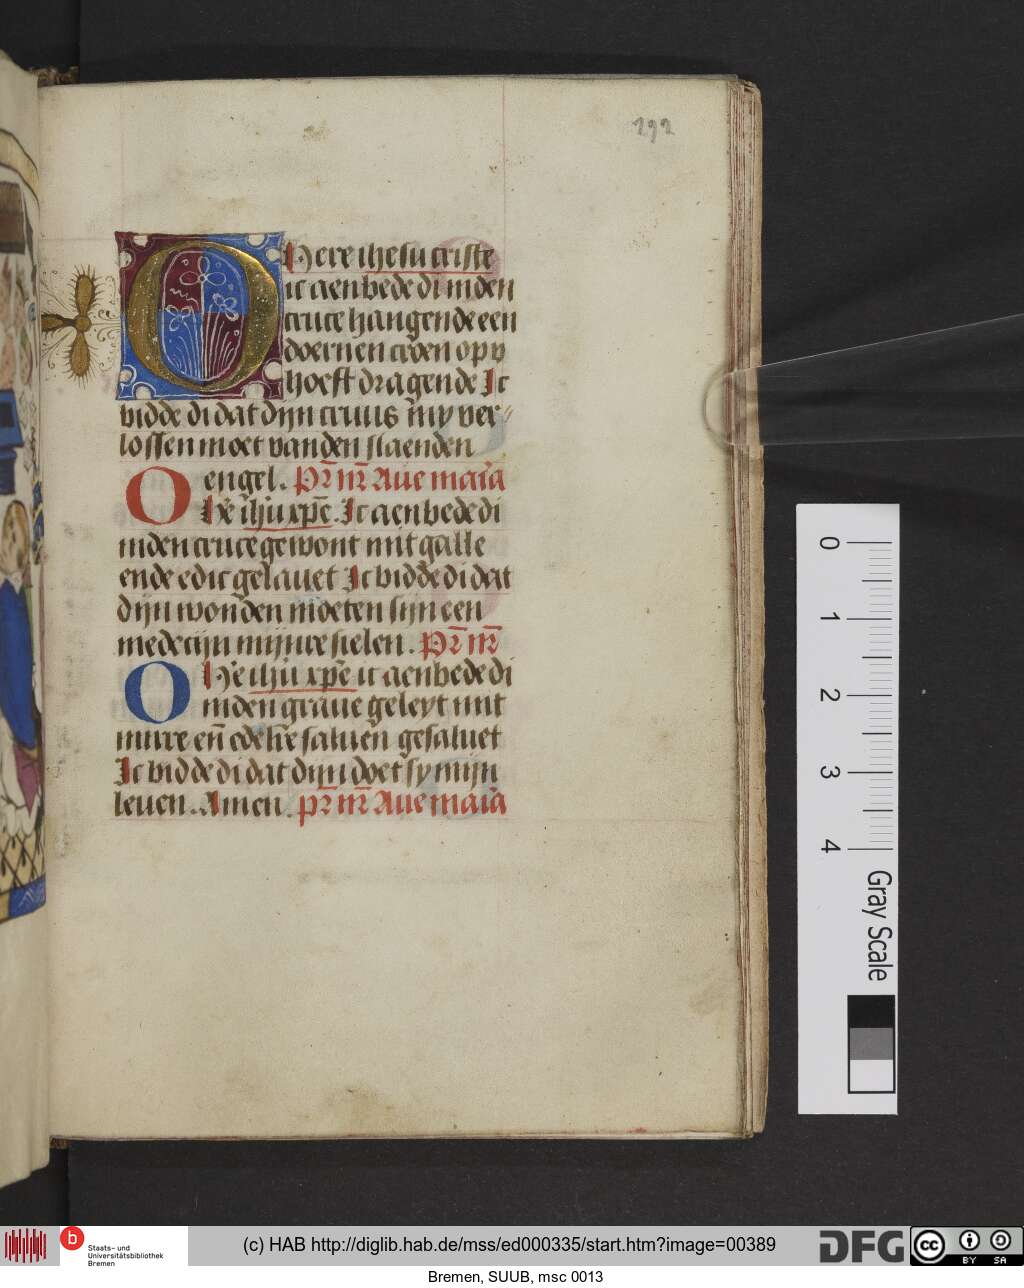 192
O Here ihesu criste
ic aenbede di inden
cruce hangende een
doernen croen op v
hoeft dragende Ic
bidde di dat dijn cruus my ver
lossen moet vanden slaenden
engel. Pr̄ nr̄ Aue maria
O He ih̄u xp̄e. Ic aenbede di
inden cruce gewont mit galle
ende edic gelauet Ic bidde di dat
dijn wonden moeten sijn een
medecijn mijnre sielen. Pr̄ nr̄
O He ih̄u xp̄e ic aenbede di
inden graue geleyt mit
mirre en̄ edelre saluen gesaluet
Ic bidde di dat dijn doet sy mijn
leuen. Amen. pr̄ nr̄ Aue maria
0
1
2
3
4
Gray Scale
b
Staats- und
Universitätsbibliothek
Bremen
(c) HAB http://diglib.hab.de/mss/ed000335/start.htm?image=00389
DFG
cc
BY SA
Bremen, SUUB, msc 0013